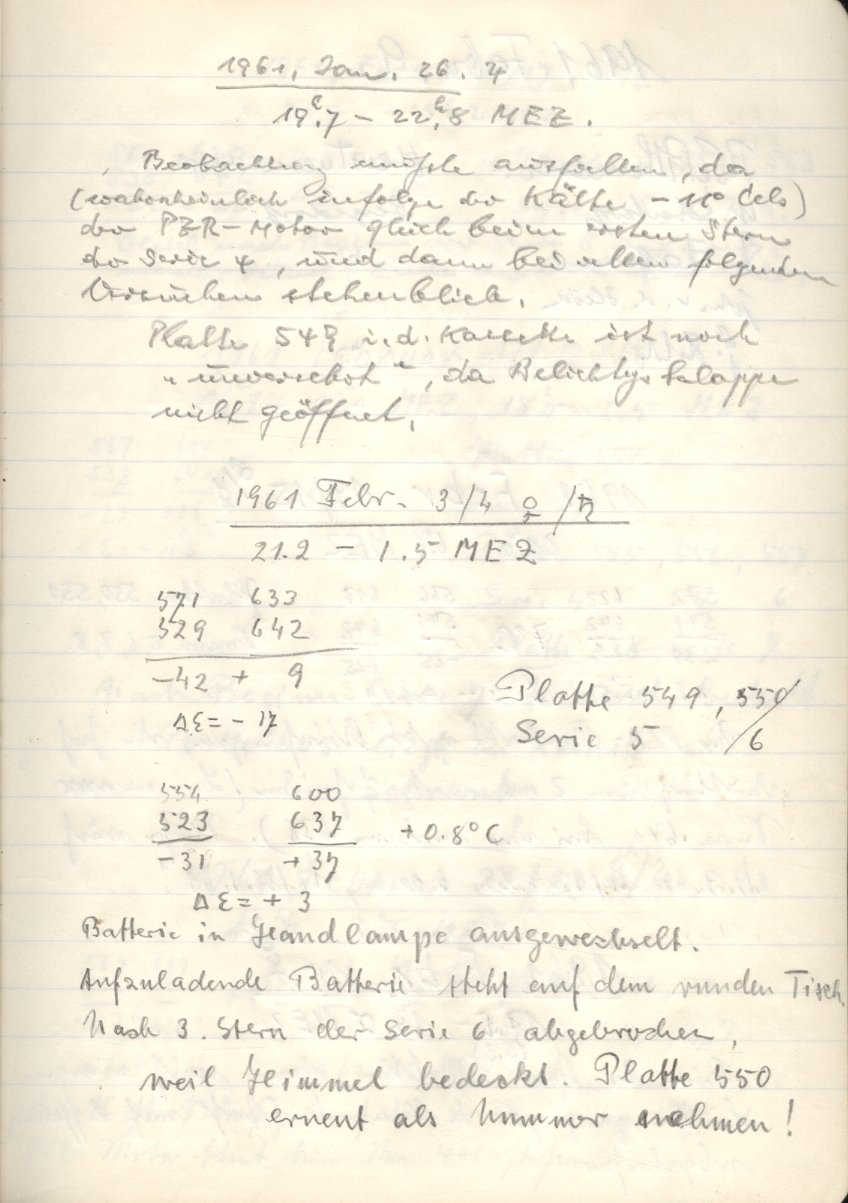 1961, Jan. 26. ♃
19ʰ.7 – 22ʰ.8 MEZ.
Beobachtung mußte ausfallen, da
(wahrscheinlich infolge der Kälte – 11° Cels)
der PZR-Motor gleich beim ersten Stern
der Serie 4, und dann bei allen folgenden
Versuchen stehenblieb.
Platte 549 i.d. Kassette ist noch
„unversehrt“, da Belichtgs klappe
nicht geöffnet.
1961 Febr. 3/4 ♀/♄
21.2 – 1.5 MEZ
571 633
529 642
-42 + 9
Δε = - 17
Platte 549, 550
Serie 5 / 6
554 600
523 637 +0.8°C
-31 +37
Δε = + 3
Batterie in Handlampe ausgewechselt.
Aufzuladende Batterie steht auf dem runden Tisch.
Nach 3. Stern der Serie 6 abgebrochen,
weil Himmel bedeckt. Platte 550
erneut als Nummer nehmen!